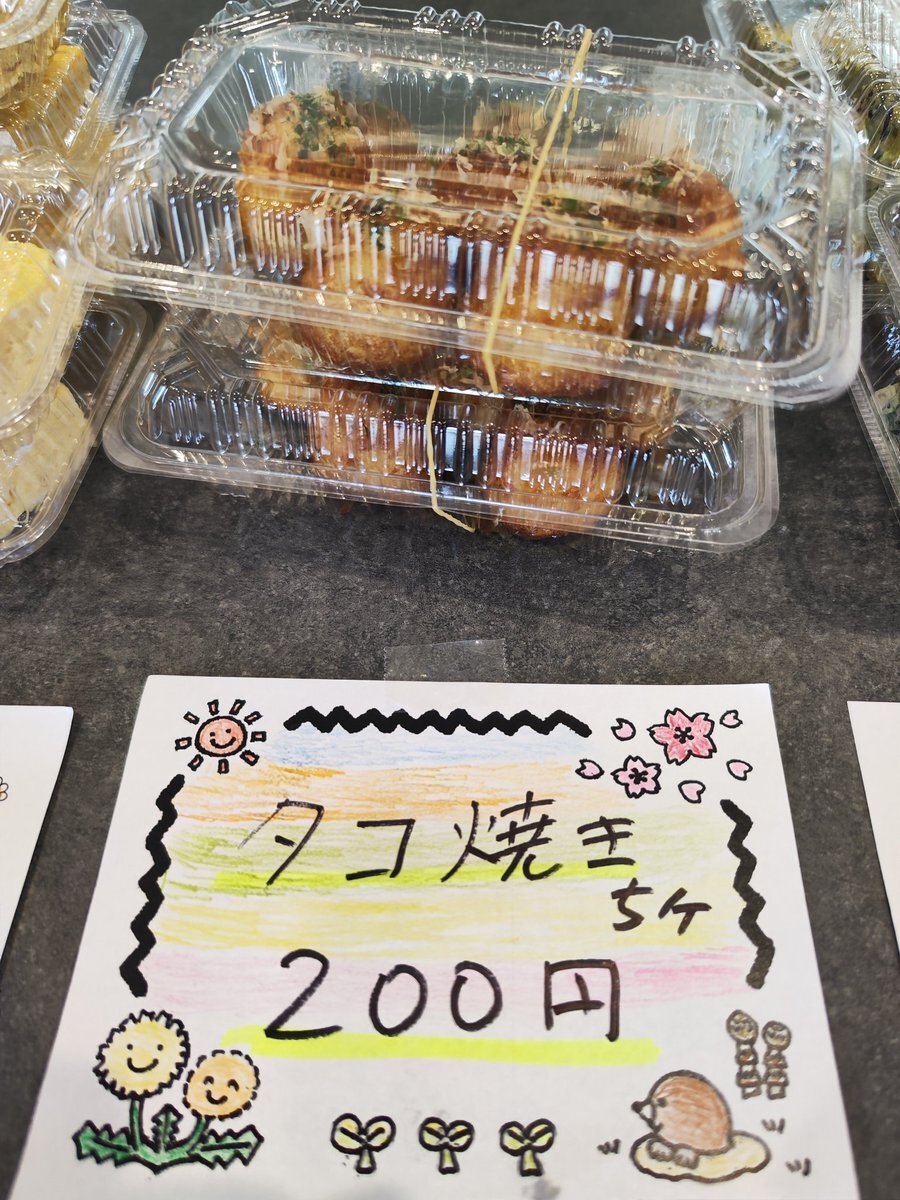 タコ焼き
5ヶ
200円